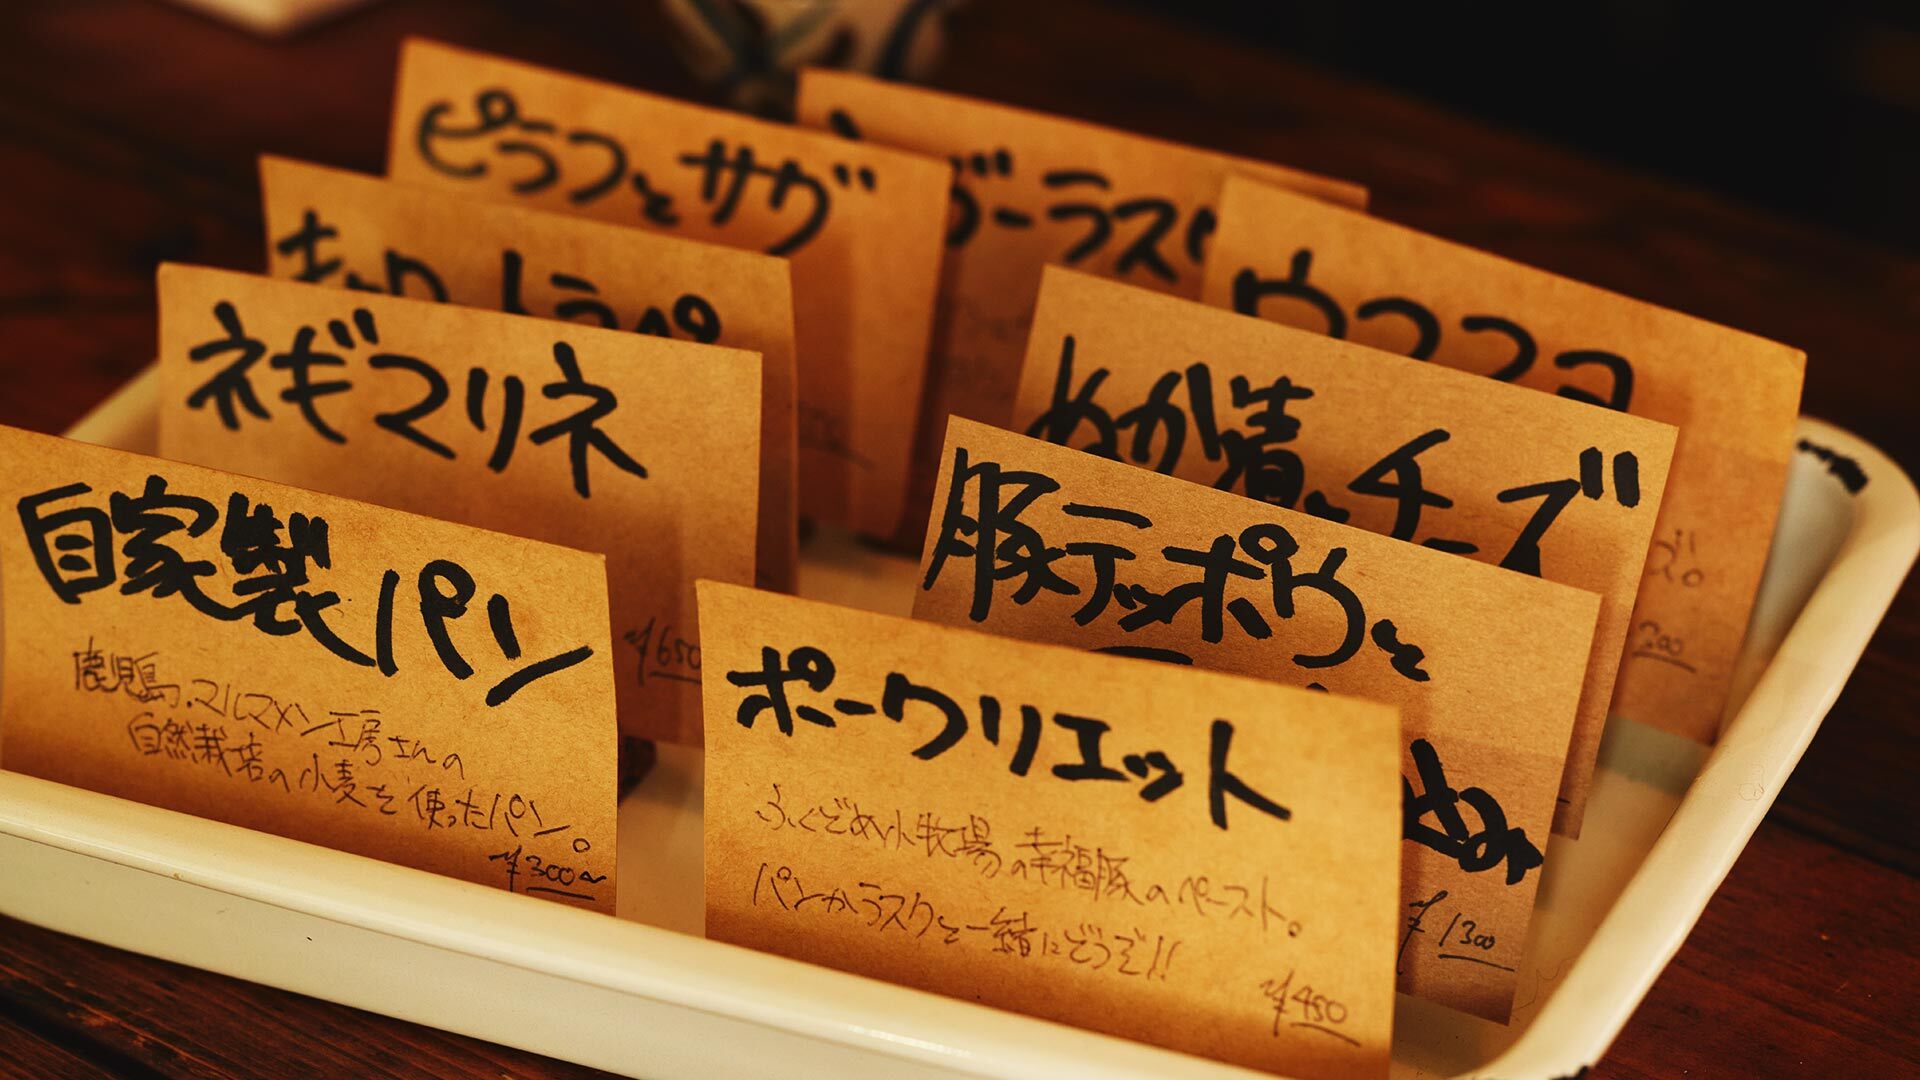 ピラフとサヴ
ガーラスク
キャロットラペ
ウフマヨ
ネギマリネ
¥650
ぬか漬とチーズ
ズ。
200
自家製パン
鹿児島、マルマメン工房さんの
自然栽培の小麦を使ったパン。
¥300~
豚テッポウと
¥1300
ポークリエット
ふくどめ小牧場の幸福豚のペースト。
パンかラスクと一緒にどうぞ!!
¥450